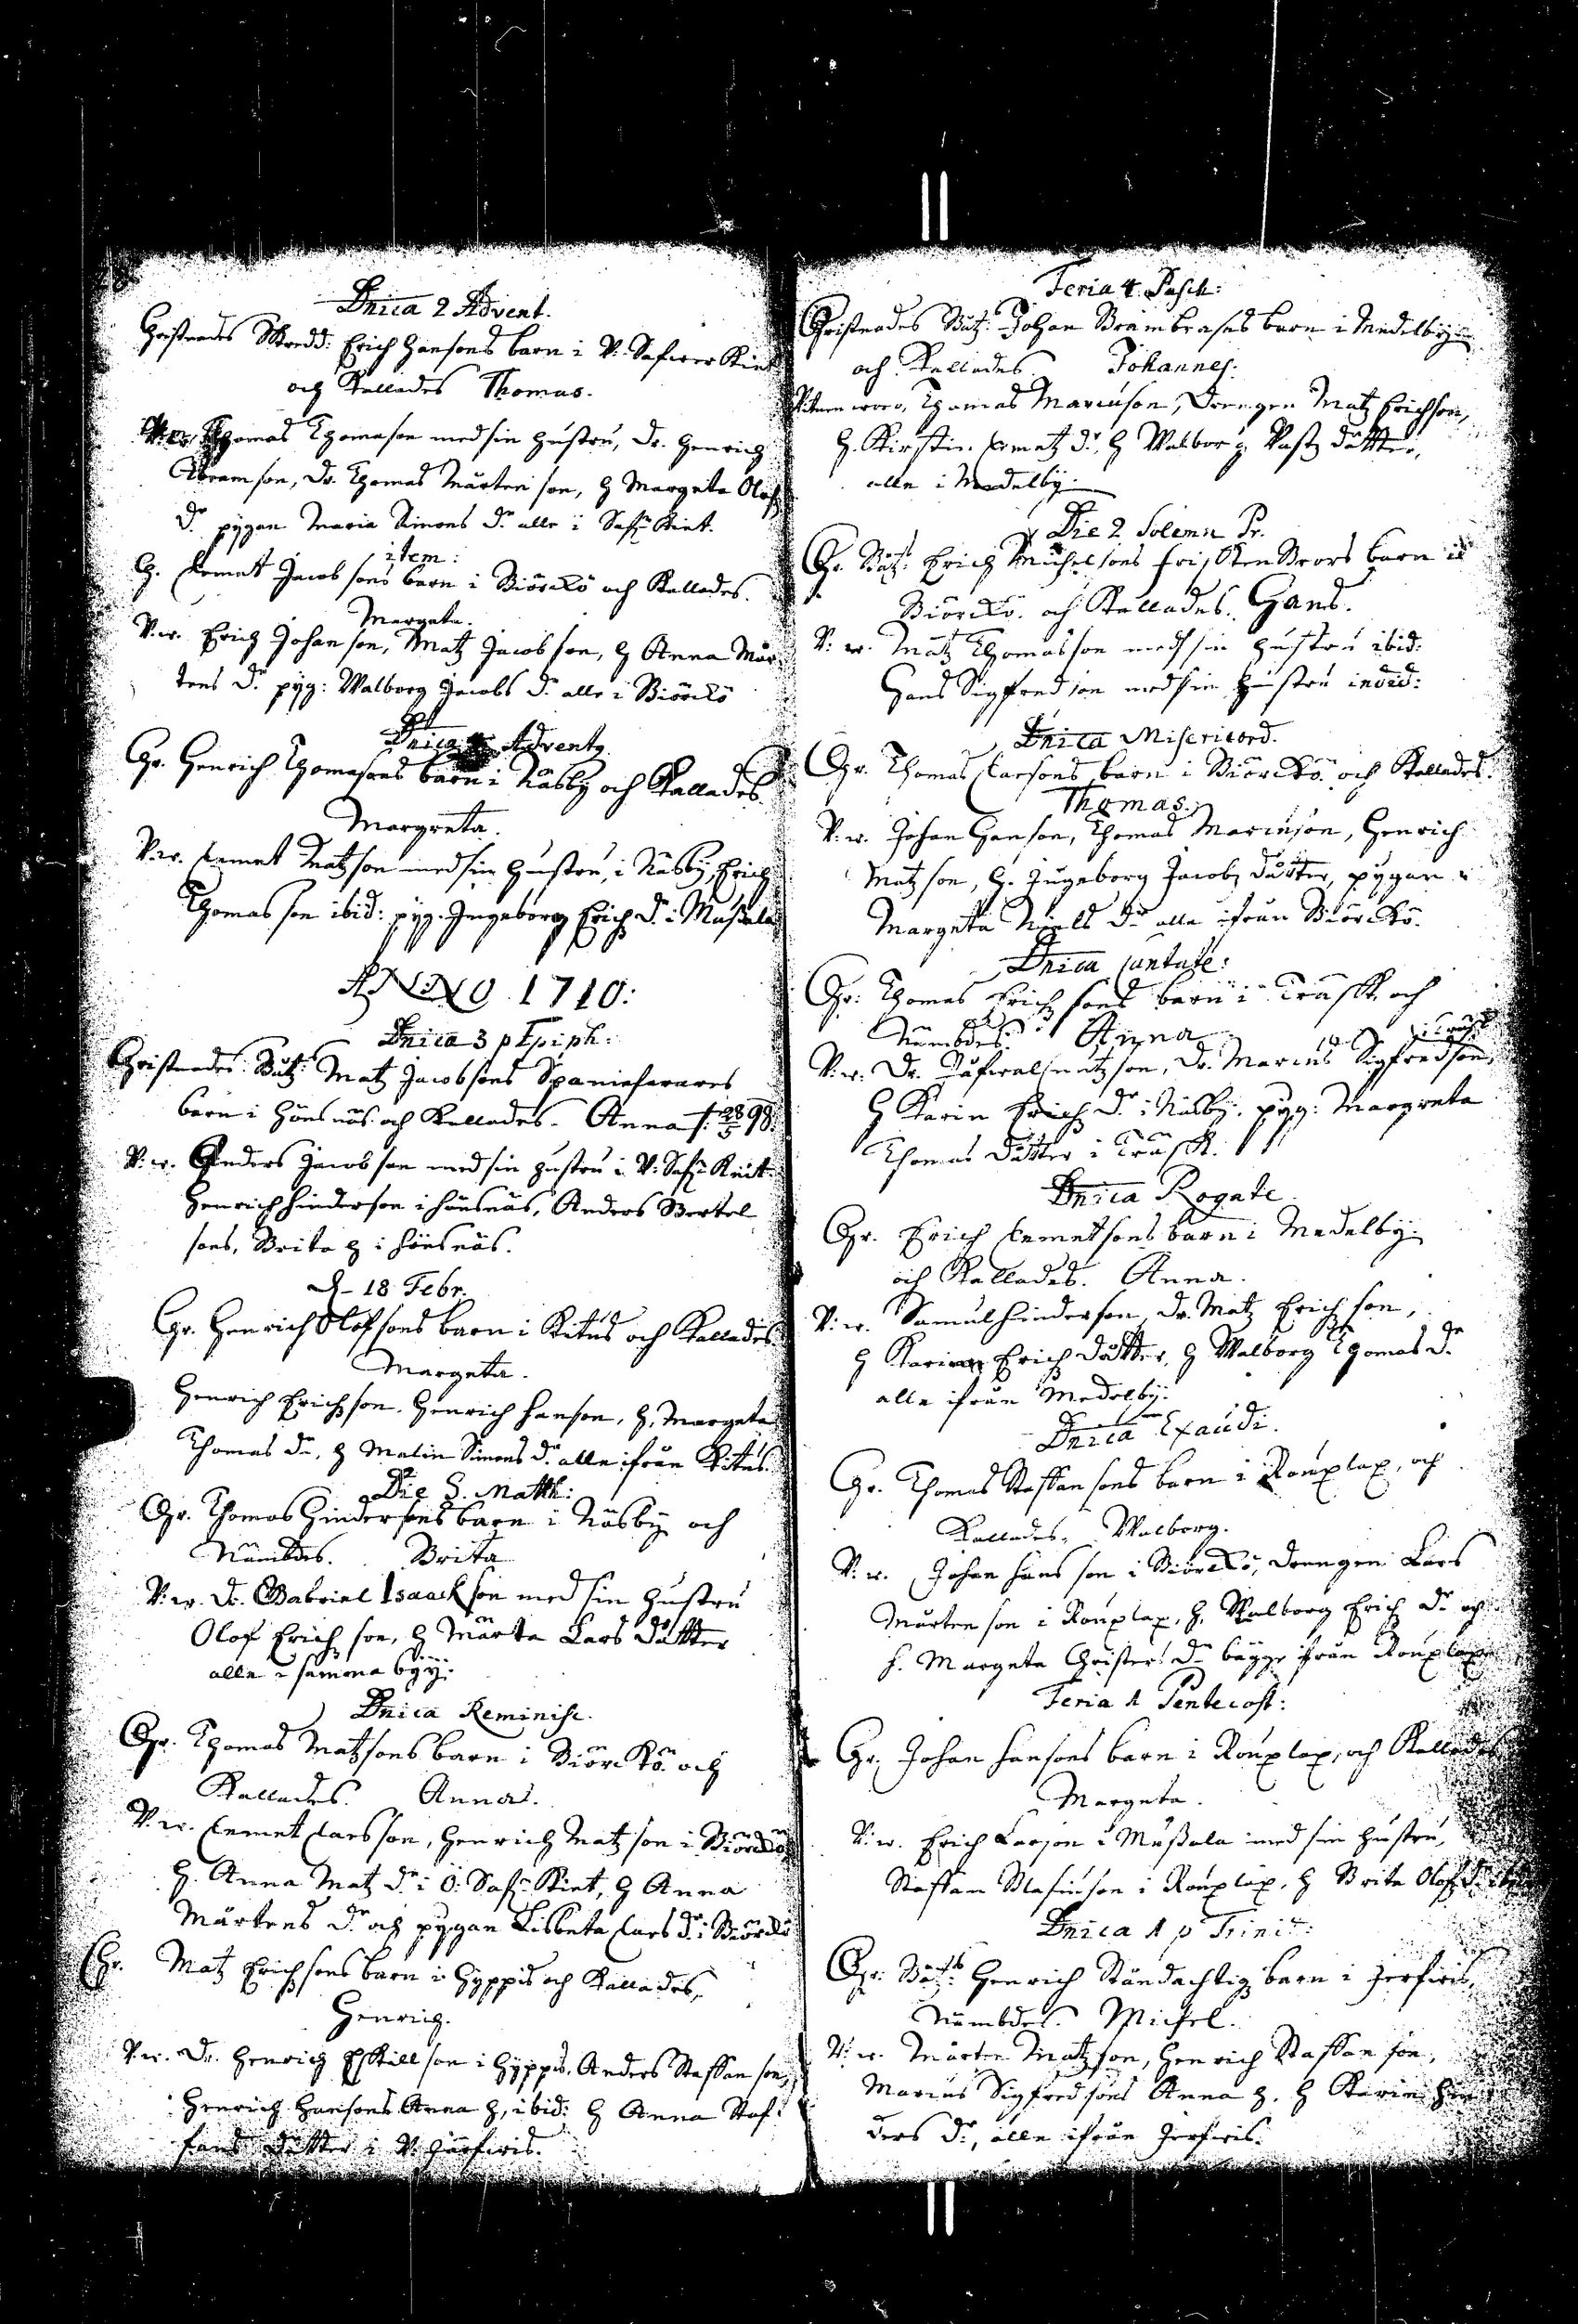 Dnica 2 Advent.
Christnades Skredd: Erich Hansons barn i V. Safwer Kint
och Kallades Thomas.
Thomas Thomason med sin hustru, Dr. Henrich
Abramson, Dr. Thomas Mårtenson, H Margeta Olofz
Dr. pygan Maria Simons Dr. alle i Saf: Kint.
item:
H. Clemet Jacobsons barn i Biörckö och Kallades.
Margeta.
V. w. Erich Johanson, Matz Jacobson, H Anna Mår
tens Dr. pyg: Walborg Jacobs Dr. alle i Biörckö
Dnica Advent.
Chr. Henrich Thomasons barn i Näsby och Kallades.
Margreta.
V. w. Clemet Matzson med sin hustru, i Näsby, Erich
Thomasson ibid: pyg. Ingeborg Erich Dr. i Mussala
ANNO 1710:
Dnica 3 p Epiph:
Christnades Båtz: Matz Jacobsons Spaniefarares
barn i Hönsnäs och Kallades. Anna
V. w. Anders Jacobson med sin hustru i V: Saf: Kint.
Henrich Hinderson i Hönsnäs, Anders Bertel
sons, Brita H i Hönsnäs.
D. 18 Febr.
Chr. Henrich Olofsons barn i Kitus och Kallades.
Margeta.
Henrich Erichsson. Henrich Hanson, H. Margeta
Thomas Dr, H Malin Simons Dr. alle ifrån Kitus.
Die S. Matth:
Chr. Thomas Hindersons barn i Näsby och
Nämbdes. Brita
V. w. Dr. Gabriel Isaackson med sin hustru
Olof Erichson, H Märta Lars dåtter
alle i samma by.
Dnica Reminisc.
Chr. Thomas Matzsons barn i Biörckö och
Kallades. Anna.
V. w. Clemet Classon, Henrich Matzson i Biörckö
H. Anna Matz Dr. i Ö: Saf: Kint, H Anna
Mårtens Dr. och pygan Lisbeta Clas Dr. i Biörckö
Chr. Matz Erichsons barn i Hyppis och Kallades,
Henrich.
V. w. Dr. Henrich Eskillson i Hyppis, Anders Staffanson,
Henrich Hansons Anna H, ibid: H Anna Staf
fans dåtter i V. Järfwis.
Feria 4. Pasch:
Christnades Båtz: Johan Brambrases barn i Medelby
och Kallades. Johannes.
Witnen woro, Thomas Marcuson, Drengen Matz Erichson,
H. Kirstin Clemetz Dr, H Walborg dåtter,
alle i Medelby.
Die 2 Solemn Pr.
Chr. Båtz: Erich Michelsons barn i
Biörckö. och Kallades. Hans.
V: w. Matz Thomasson med sin hustru ibid:
Hans Sigfredson med sin hustru ibid:
Dnica Misericord.
Chr. Thomas Clasons barn i Biörckö och Kallades.
Thomas.
V: w. Johan Hanson, Thomas Marcuson, Henrich
Matzson, H. Ingeborg Jacobz dåtter, pygan
Margeta Niels Dr. alle ifrån Biörckö.
Dnica Cantate:
Chr: Thomas Erichsons barn i Träsk och
Nämbdes. Anna
V: w. Dr. Matzson, Dr. Marcus Sigfredson, i Träsk
H Karin Erich Dr. i Näsby. pyg: Margreta
Thomas dåtter i Träsk.
Dnica Rogate.
Chr. Erich Clemetsons barn i Medelby
och Kallades. Anna.
V: w. Samuel Hinderson, Dr. Matz Erichson,
H Karin Erich dåtter, H Walborg Thomas Dr
alle ifrån Medelby.
Dnica Exaudi.
Chr. Thomas Staffansons barn i Rouplax, och
Kallades. Walborg.
V: w. Johan Hanson i Biörckö, Drengen Lars
Mårtenson i Rouplax, H. Walborg Erich Dr. och
H. Margeta Christers Dr. bägge ifrån Rouplax
Feria 1 Pentecost:
Chr. Johan Hansons barn i Rouplax, och Kallades
Margeta.
V: w. Erich Larson i Mussala med sin hustru,
Staffan Blasiuson i Rouplax, H Brita Olofz Dr. ibid
Dnica 1 p Trinit:
Chr: Båtz: Henrich Ståndachtig barn i Jerfwis,
Nämbdes. Michel.
V: w. Mårten Matzson, Henrich Staffanson,
Marcus Sigfredsons Anna H. H Karin Hin
ders Dr, alle ifrån Jerfwis.